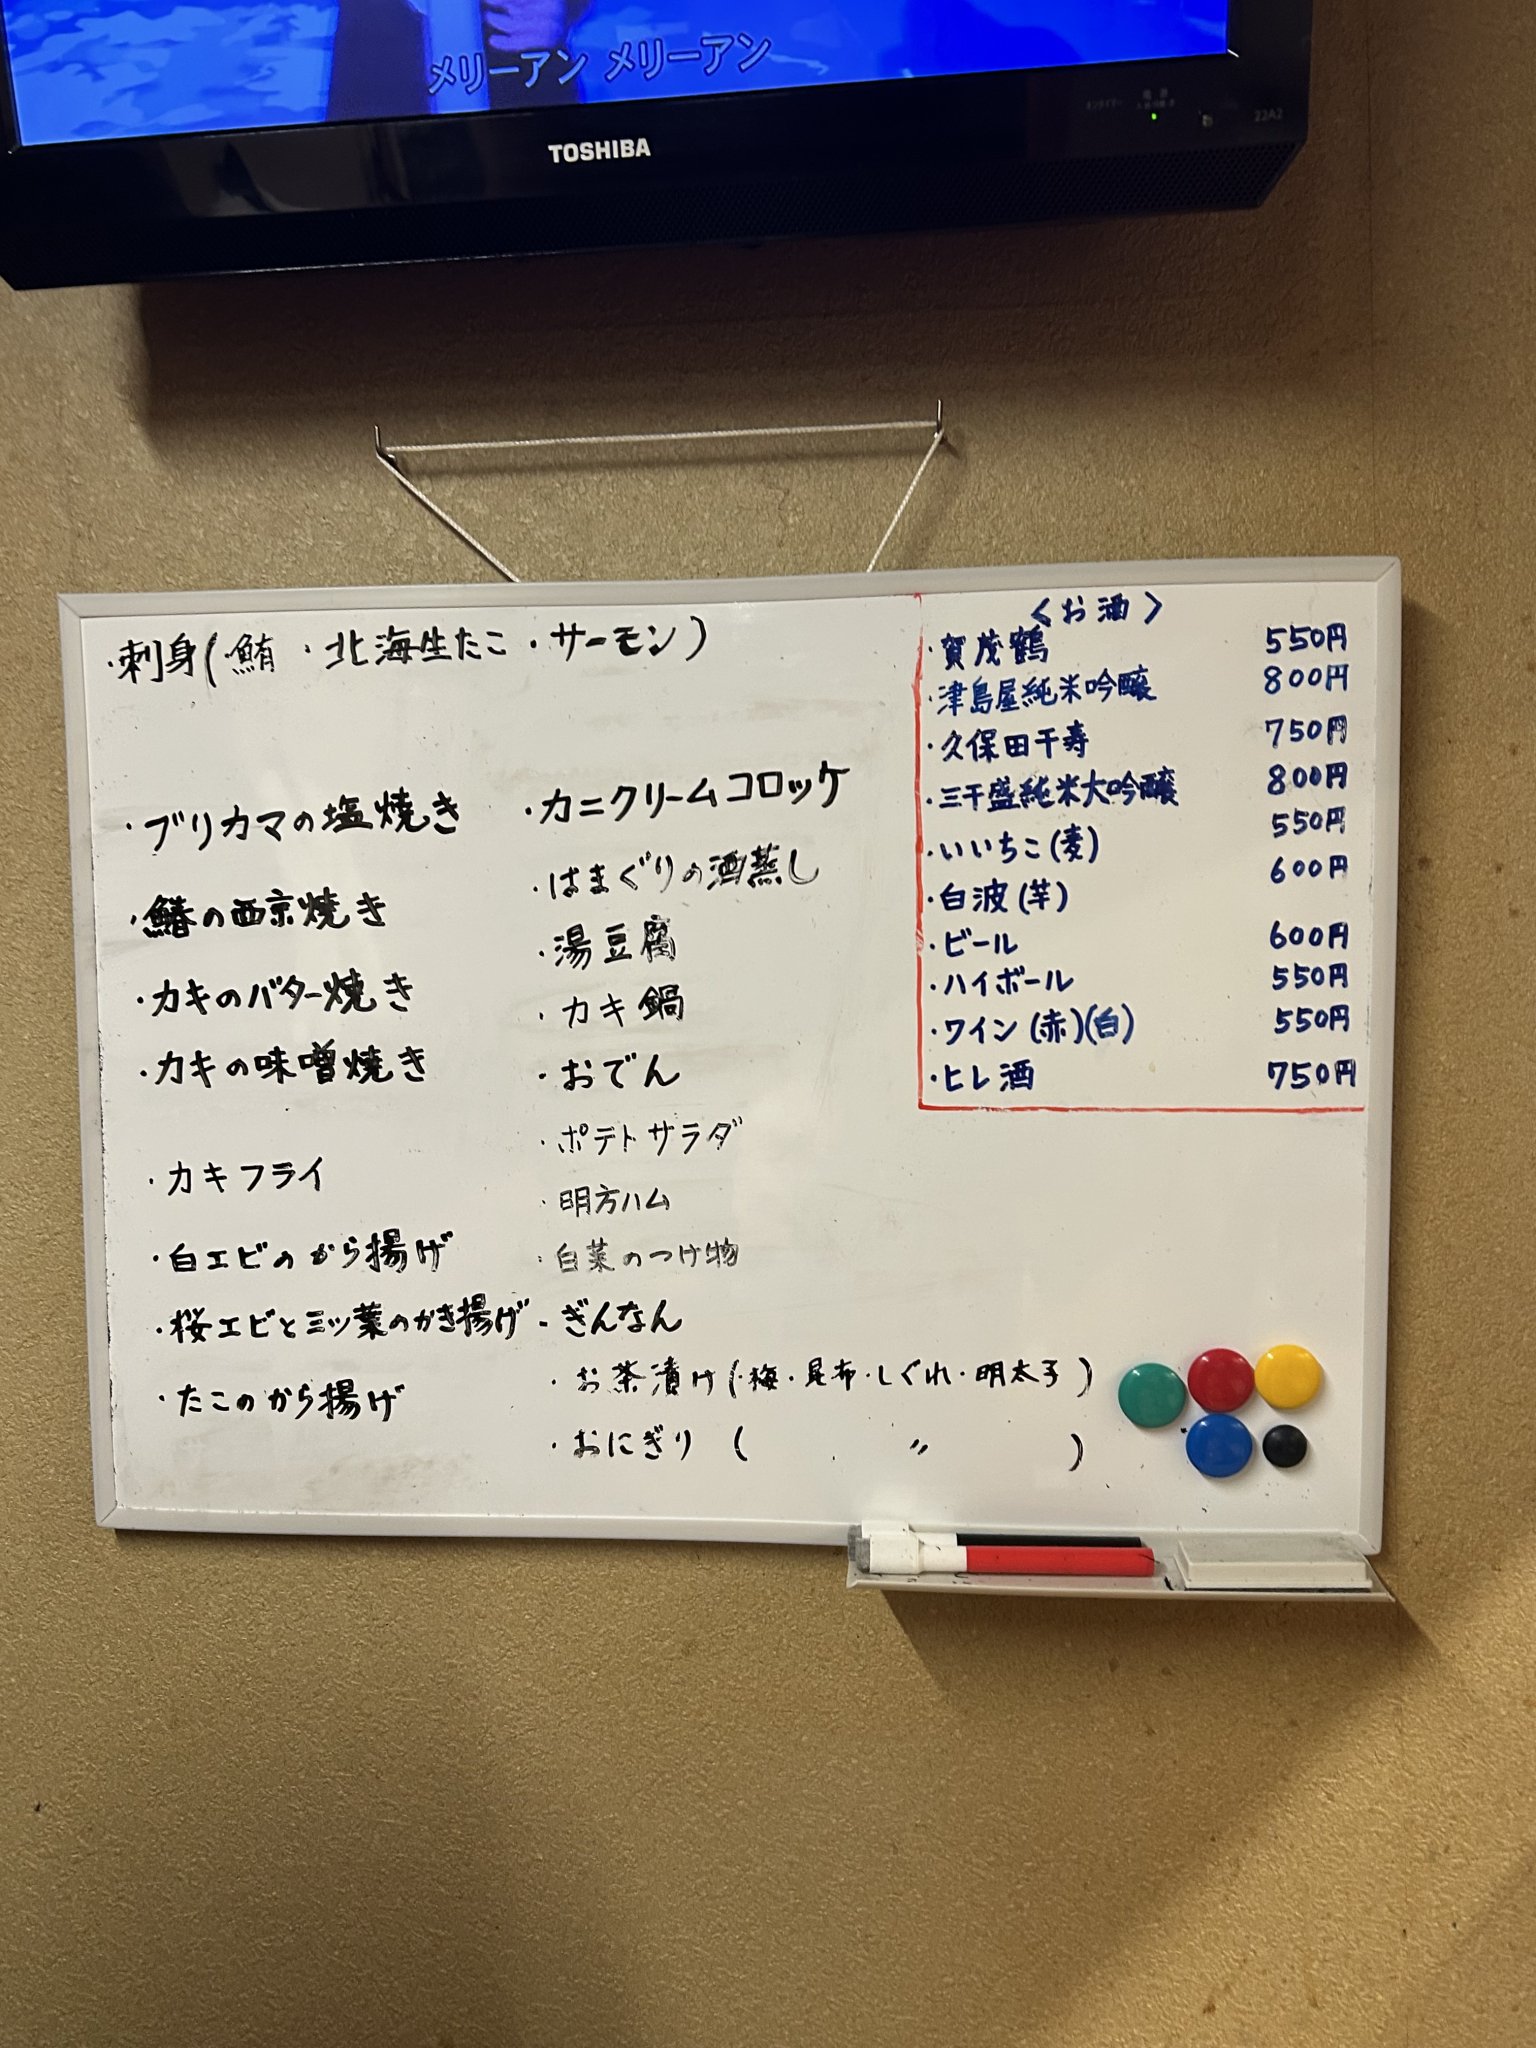 メリーアン メリーアン
TOSHIBA
22A2
・刺身(鮪・北海生たこ・サーモン)
・ブリカマの塩焼き
・鰆の西京焼き
・カキのバター焼き
・カキの味噌焼き
・カキフライ
・白エビのから揚げ
・桜エビと三ツ葉のかき揚げ
・たこのから揚げ
・カニクリームコロッケ
・はまぐりの酒蒸し
・湯豆腐
・カキ鍋
・おでん
・ポテトサラダ
・明方ハム
・白菜のつけ物
・ぎんなん
・お茶漬け(梅・昆布・しぐれ・明太子)
・おにぎり( 〃 )
<お酒>
・賀茂鶴 550円
・津島屋純米吟醸 800円
・久保田千寿 750円
・三千盛純米大吟醸 800円
・いいちこ(麦) 550円
・白波(芋) 600円
・ビール 600円
・ハイボール 550円
・ワイン(赤)(白) 550円
・ヒレ酒 750円